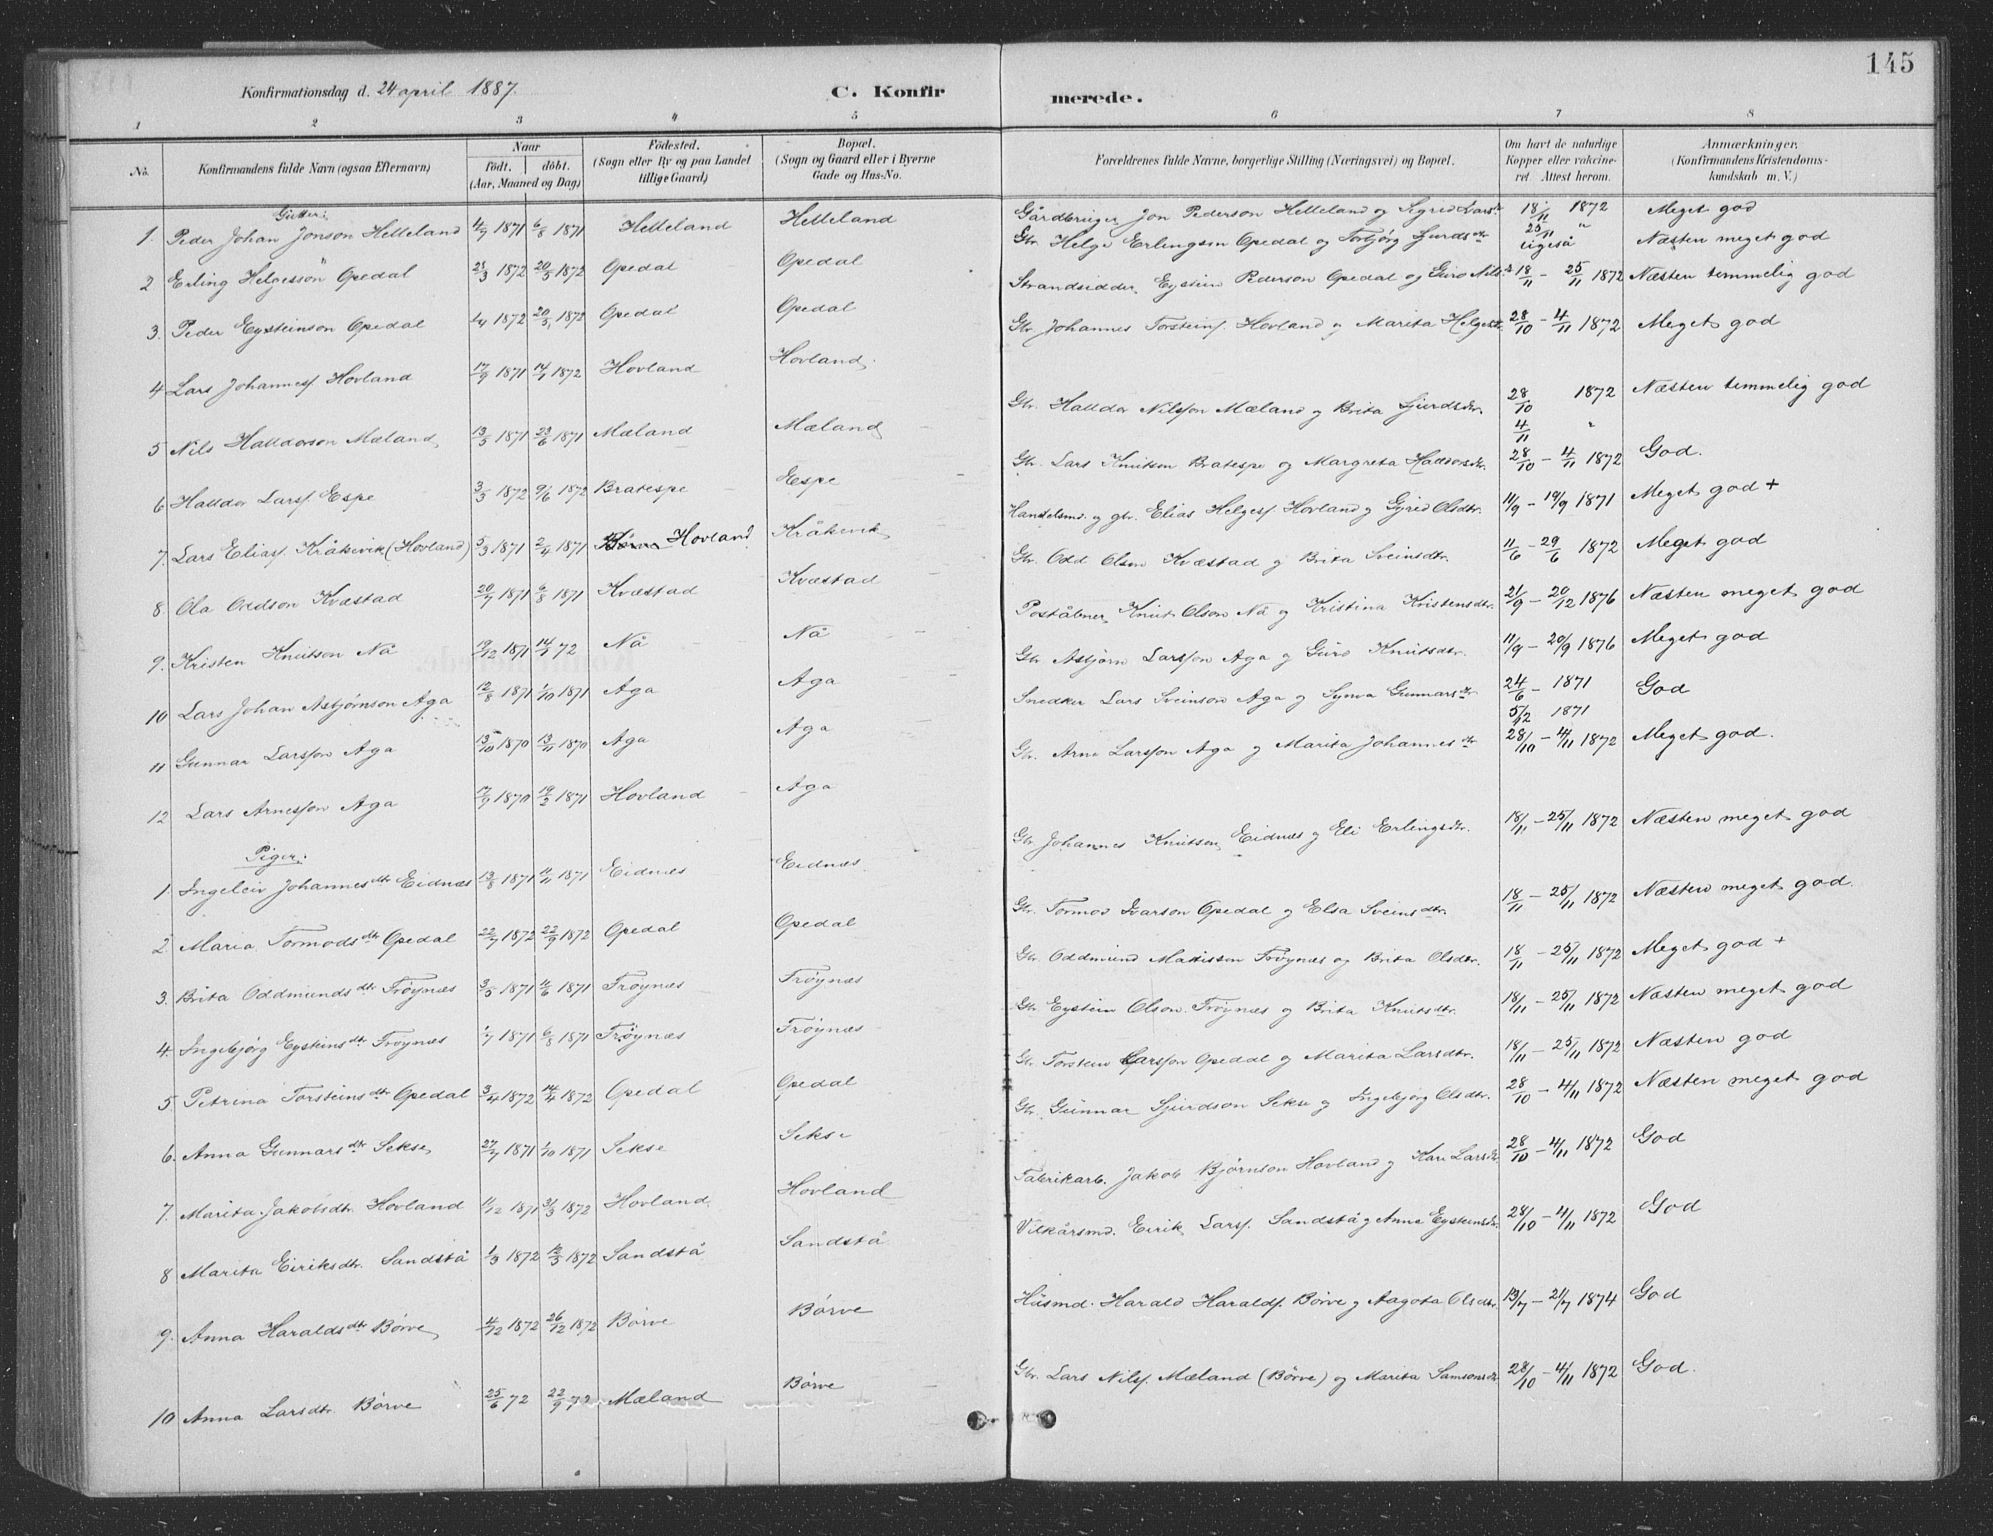 145
Konfirmationsdag d. 24 april 1887.
C. Konfirmerede.
1 2 3 4 5 6 7 8
No.
Konfirmandens fulde Navn (ogsaa Efternavn)
Naar født. døbt. (Aar, Maaned og Dag)
Fødested. (Sogn eller By og paa Landet tillige Gaard)
Bopæl. (Sogn og Gaard eller i Byerne Gade og Hus-No.
Forældrenes fulde Navne, borgerlige Stilling (Næringsvei) og Bopæl.
Om havt de naturlige Kopper eller vakcineret. Attest herom.
Anmærkninger, (Konfirmandens Kristendomskundskab m. V.)
Gutter:
1. Peder Johan Jonson Helleland 4/7 1871 6/8 1871 Helleland Helleland Gårdbruger Jon Pederson Helleland og Sigrid Larsdr 18/11 1872 25/11 " Meget god
2 Erling Helgesson Opedal 21/3 1872 20/5 1872 Opedal Opedal Gbr Helge Erlingson Opedal og Torbjørg Sjurdsdtr ligeså Næsten meget god
3. Peder Eysteinson Opedal 1/4 1872 20/5 1872 Opedal Opedal Strandsidder Eystein Pederson Opedal og Guro Nilsd 18/11 - 25/11 1872 Næsten temmelig god
4 Lars Johannesf Hovland 17/9 1871 14/1 1872 Hovland Hovland. Gbr Johannes Torsteinf. Hovland og Marita Helgesdtr 28/10 - 4/11 1872 Meget god
5 Nils Halldorson Mæland 13/5 1871 23/6 1871 Mæland Mæland Gbr. Halldor Nilsson Mæland og Brita Sjurdsdr. 28/10 1872 4/11 " Næsten temmelig god
6 Halldor Larsf. Espe 3/5 1872 9/6 1872 Bratespe Espe Gbr. Lars Knutson Bratespe og Margreta Halldorsdr. 28/10 - 4/11 1872 God.
7. Lars Eliasf. Kråkevik (Hovland) 5/3 1871 2/4 1871 Børve Hovland Kråkevik Handelsmd og gbr. Elias Helgesf Hovland og Gyrid Olsdtr. 11/9 - 19/9 1871 Meget god +
8 Ola Oddson Kvæstad 20/7 1871 6/8 1871 Kvæstad Kvæstad Gbr Odd Olson Kvæstad og Brita Sveinsdtr. 11/6 - 29/6 1872 Meget god
9. Kristen Knutson Nå 19/12 1871 14/1 72 Nå Nå Poståbner Knut Olson Nå og Kristina Kristensdtr. 21/9 - 20/12 1876 Næsten meget god
10 Lars Johan Asbjørnson Aga 12/8 1871 1/10 1871 Aga Aga Gbr Asbjørn Larsson Aga og Guro Knutsdtr. 11/9 - 20/9 1876 Meget god
11 Gunnar Larsson Aga 13/10 1870 13/11 1870 Aga Aga Snedker Lars Sveinson Aga og Synva Gunnarsdr 24/6 - 1871 5/12 1871 God
12 Lars Arnesson Aga 17/9 1870 19/2 1871 Hovland Aga Gbr. Arne Larsson Aga og Marita Johannesdtr 28/10 - 4/11 1872 Meget god.
Piger:
1. Ingeleiv Johannesdtr Eidnæs 13/8 1871 11/11 1871 Eidnæs Eidnæs Gbr Johannes Knutson Eidnæs og Eli Erlingsdtr. 18/11 - 25/11 1872 Næsten meget god
2. Maria Tormodsdtr Opedal 22/7 1872 22/9 1872 Opedal Opedal Gbr. Tormod Ivarson Opedal og Elsa Sveinsdtr. 18/11 - 25/11 1872 Næsten meget god.
3. Brita Oddmundsdtr Trøynæs 3/5 1871 11/6 1871 Trøynæs Trøynæs Gbr. Oddmund Matisson Trøynæs og Brita Olsdtr. 18/11 - 25/11 1872 Meget god +
4. Ingebjørg Eysteinsdtr Trøynæs 1/7 1871 6/8 1871 Trøynæs Trøynæs Gbr Eystein Olson Trøynæs og Brita Knutsdtr. 18/11 - 25/11 1872 Næsten meget god
5 Petrina Torsteinsdtr Opedal 3/4 1872 14/4 1872 Opedal Opedal Gbr. Torstein Larsson Opedal og Marita Larsdtr. 18/11 - 25/11 1872 Næsten god
6. Anna Gunnarsdtr Sekse 27/7 1871 1/10 1871 Sekse Sekse Gbr. Gunnar Sjurdson Sekse og Ingebjørg Olsdtr. 28/10 - 4/11 1872 Næsten meget god
7. Marita Jakobsdtr. Hovland 11/12 1871 31/3 1872 Hovland Hovland Fabrikarb. Jakob Bjørnson Hovland og Kari Larsdr. 28/10 - 4/11 1872 God
8 Marita Eiriksdtr. Sandstå 1/3 1872 12/3 1872 Sandstå Sandstå Vilkårsmd. Eirik Larsf. Sandstå og Anna Eysteinsdr. 28/10 - 4/11 1872 God
9. Anna Haraldsdtr Børve 4/12 1872 26/12 1872 Børve Børve Husmd. Harald Haraldf. Børve og Aagota Olsdtr. 13/7 - 21/7 1874 God
10 Anna Larsdtr. Børve 25/6 72 22/9 72 Mæland Børve Gbr. Lars Nilsf. Mæland (Børve) og Marita Samsonsdr 28/10 - 4/11 1872 God.